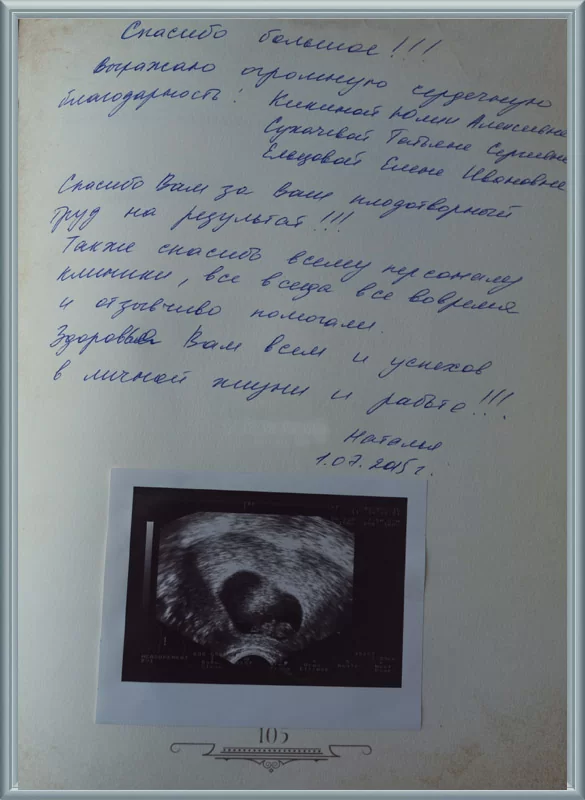 Спасибо большое!!!
выражаю огромную сердечную
благодарность! Кикиной Юлии Алексеевне
Сухачевой Татьяне Сергеевне
Ельцовой Елене Ивановне
Спасибо Вам за ваш плодотворный
труд на результат!!!
Также спасибо всему персоналу
клиники, все всегда все вовремя
и отзывчиво помогали.
Здоровья Вам всем и успехов
в личной жизни и работе!!!
Наталья
1.07.2015 г.
105